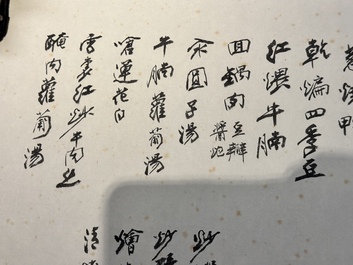 甲
乾煸四季豆
紅煨牛腩
回鍋肉
豆瓣
醬
汆圓子湯
牛腩蘿蔔湯
嗆蓮花白
雪裏紅炒牛肉絲
醃肉蘿蔔湯
炒
炒
燴
清